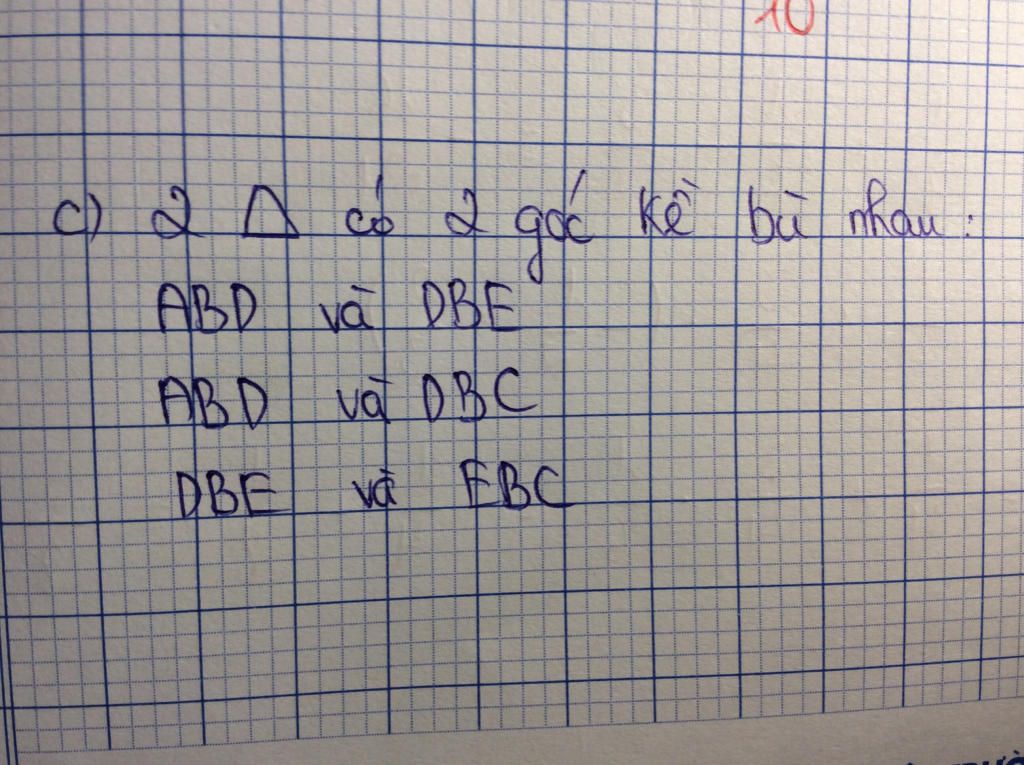 10
c) 2 Δ có 2 góc kề bù nhau:
ABD và DBE
ABD và DBC
DBE và EBC